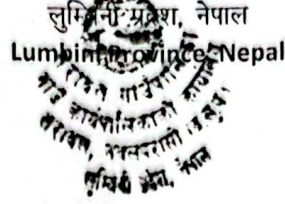 लुम्बिनी प्रदेश, नेपाल
Lumbini Province, Nepal
गाउँ कार्यपालिकाको कार्यालय
सरावल, नवलपरासी (ब.सु.प.)
लुम्बिनी प्रदेश, नेपाल